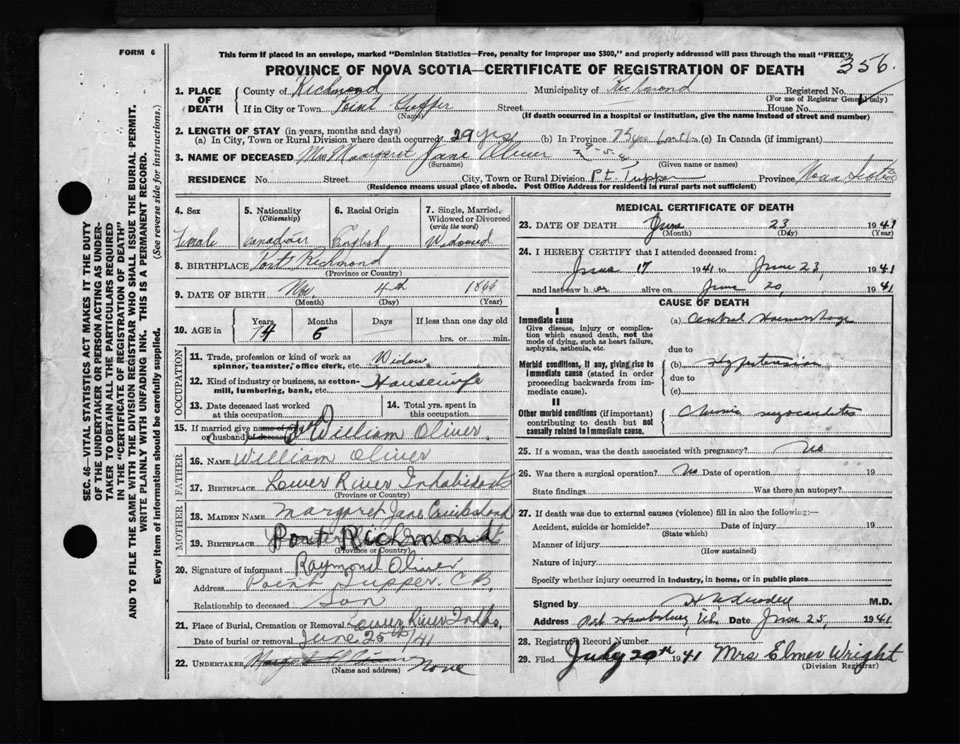 FORM 6
This form if placed in an envelope, marked "Dominion Statistics—Free, penalty for improper use $300," and properly addressed will pass through the mail "FREE"
PROVINCE OF NOVA SCOTIA—CERTIFICATE OF REGISTRATION OF DEATH
356
SEC. 46—VITAL STATISTICS ACT MAKES IT THE DUTY
OF THE UNDERTAKER OR PERSON ACTING AS UNDER-
TAKER TO OBTAIN ALL THE PARTICULARS REQUIRED
IN THE "CERTIFICATE OF REGISTRATION OF DEATH"
AND TO FILE THE SAME WITH THE DIVISION REGISTRAR WHO SHALL ISSUE THE BURIAL PERMIT.
WRITE PLAINLY WITH UNFADING INK. THIS IS A PERMANENT RECORD.
Every item of information should be carefully supplied. (See reverse side for instructions.)
1. PLACE OF DEATH
County of Richmond Municipality of Richmond Registered No.
(For use of Registrar General only)
If in City or Town Point Tupper Street House No.
(Name) (If death occurred in a hospital or institution, give the name instead of street and number)
2. LENGTH OF STAY (in years, months and days)
(a) In City, Town or Rural Division where death occurred 29 yrs (b) In Province 75 yrs (c) In Canada (if immigrant)
3. NAME OF DECEASED Mrs Margaret Jane Oliver
(Surname) (Given name or names)
RESIDENCE No. Street City, Town or Rural Division Pt. Tupper Province Nova Scotia
(Residence means usual place of abode. Post Office Address for residents in rural parts not sufficient)
4. Sex 5. Nationality (Citizenship) 6. Racial Origin 7. Single, Married, Widowed or Divorced (write the word)
Female Canadian English Widowed
8. BIRTHPLACE Port Richmond
(Province or Country)
9. DATE OF BIRTH 4th 1866
(Month) (Day) (Year)
10. AGE in Years Months Days If less than one day old
74 6 hrs. or min.
OCCUPATION
11. Trade, profession or kind of work as spinner, teamster, office clerk, etc. Widow
12. Kind of industry or business, as cotton-mill, lumbering, bank, etc. Housewife
13. Date deceased last worked at this occupation
14. Total yrs. spent in this occupation
15. If married give name of wife or husband of deceased William Oliver
FATHER
16. Name William Oliver
17. Birthplace Lower River Inhabitants
(Province or Country)
MOTHER
18. Maiden Name Margaret Jane
19. Birthplace Port Richmond
(Province or Country)
20. Signature of informant Raymond Oliver
Address Point Tupper. C.B.
Relationship to deceased Son
21. Place of Burial, Cremation or Removal Lower River Inhbs.
Date of burial or removal June 25th/41
22. UNDERTAKER None
(Name and address)
MEDICAL CERTIFICATE OF DEATH
23. DATE OF DEATH June 23 1941
(Month) (Day) (Year)
24. I HEREBY CERTIFY that I attended deceased from:
June 17 1941 to June 23, 1941
and last saw her alive on June 20, 1941
CAUSE OF DEATH
I
Immediate cause (a) Cerebral Haemorrhage
Give disease, injury or complication which caused death, not the mode of dying, such as heart failure, asphyxia, asthenia, etc.
due to
Morbid conditions, if any, giving rise to immediate cause (stated in order proceeding backwards from immediate cause). (b) Hypertension
due to
(c)
II
Other morbid conditions (if important) contributing to death but not causally related to immediate cause. Chronic myocarditis
25. If a woman, was the death associated with pregnancy? No
26. Was there a surgical operation? No Date of operation 19
State findings Was there an autopsy?
27. If death was due to external causes (violence) fill in also the following:—
Accident, suicide or homicide? Date of injury 19
(State which)
Manner of injury
(How sustained)
Nature of injury
Specify whether injury occurred in industry, in home, or in public place
Signed by M.D.
Address Port Hawkesbury, N.S. Date June 25, 1941
28. Registrars Record Number
29. Filed July 20th 1941 Mrs Elmer Wright
(Division Registrar)